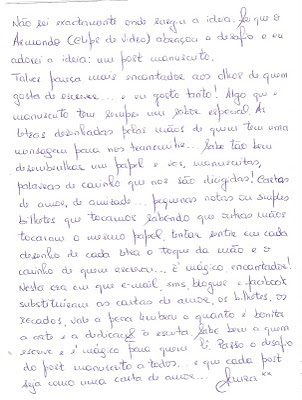 Não sei exactamente onde surgiu a ideia. Sei que o
Armando (Clips de Video) abraçou o desafio e eu
adorei a ideia: um post manuscrito.
Talvez pareça mais encantador aos olhos de quem
gosta de escrever... e eu gosto tanto! Algo que é
manuscrito tem sempre um sabor especial. As
letras desenhadas pelas mãos de quem tem uma
mensagem para nos transmitir... Sabe tão bem
desembrulhar um papel e ver, manuscritas,
palavras de carinho que nos são dirigidas! Cartas
de amor, de amizade... pequenas notas ou simples
bilhetes que tocamos sabendo que outras mãos
tocaram o mesmo papel, tentar sentir em cada
desenho de cada letra o toque da mão e o
carinho de quem escreveu... é mágico, encantador!
Nesta era em que e-mail, sms, blogue e facebook
substituíram as cartas de amor, os bilhetes, os
recados, vale a pena lembrar o quanto é bonita
a arte e a dedicação à escrita. Sabe bem a quem
escreve e é mágico para quem lê. Passo o desafio
do post manuscrito a todos... e que cada post
seja como uma carta de amor...